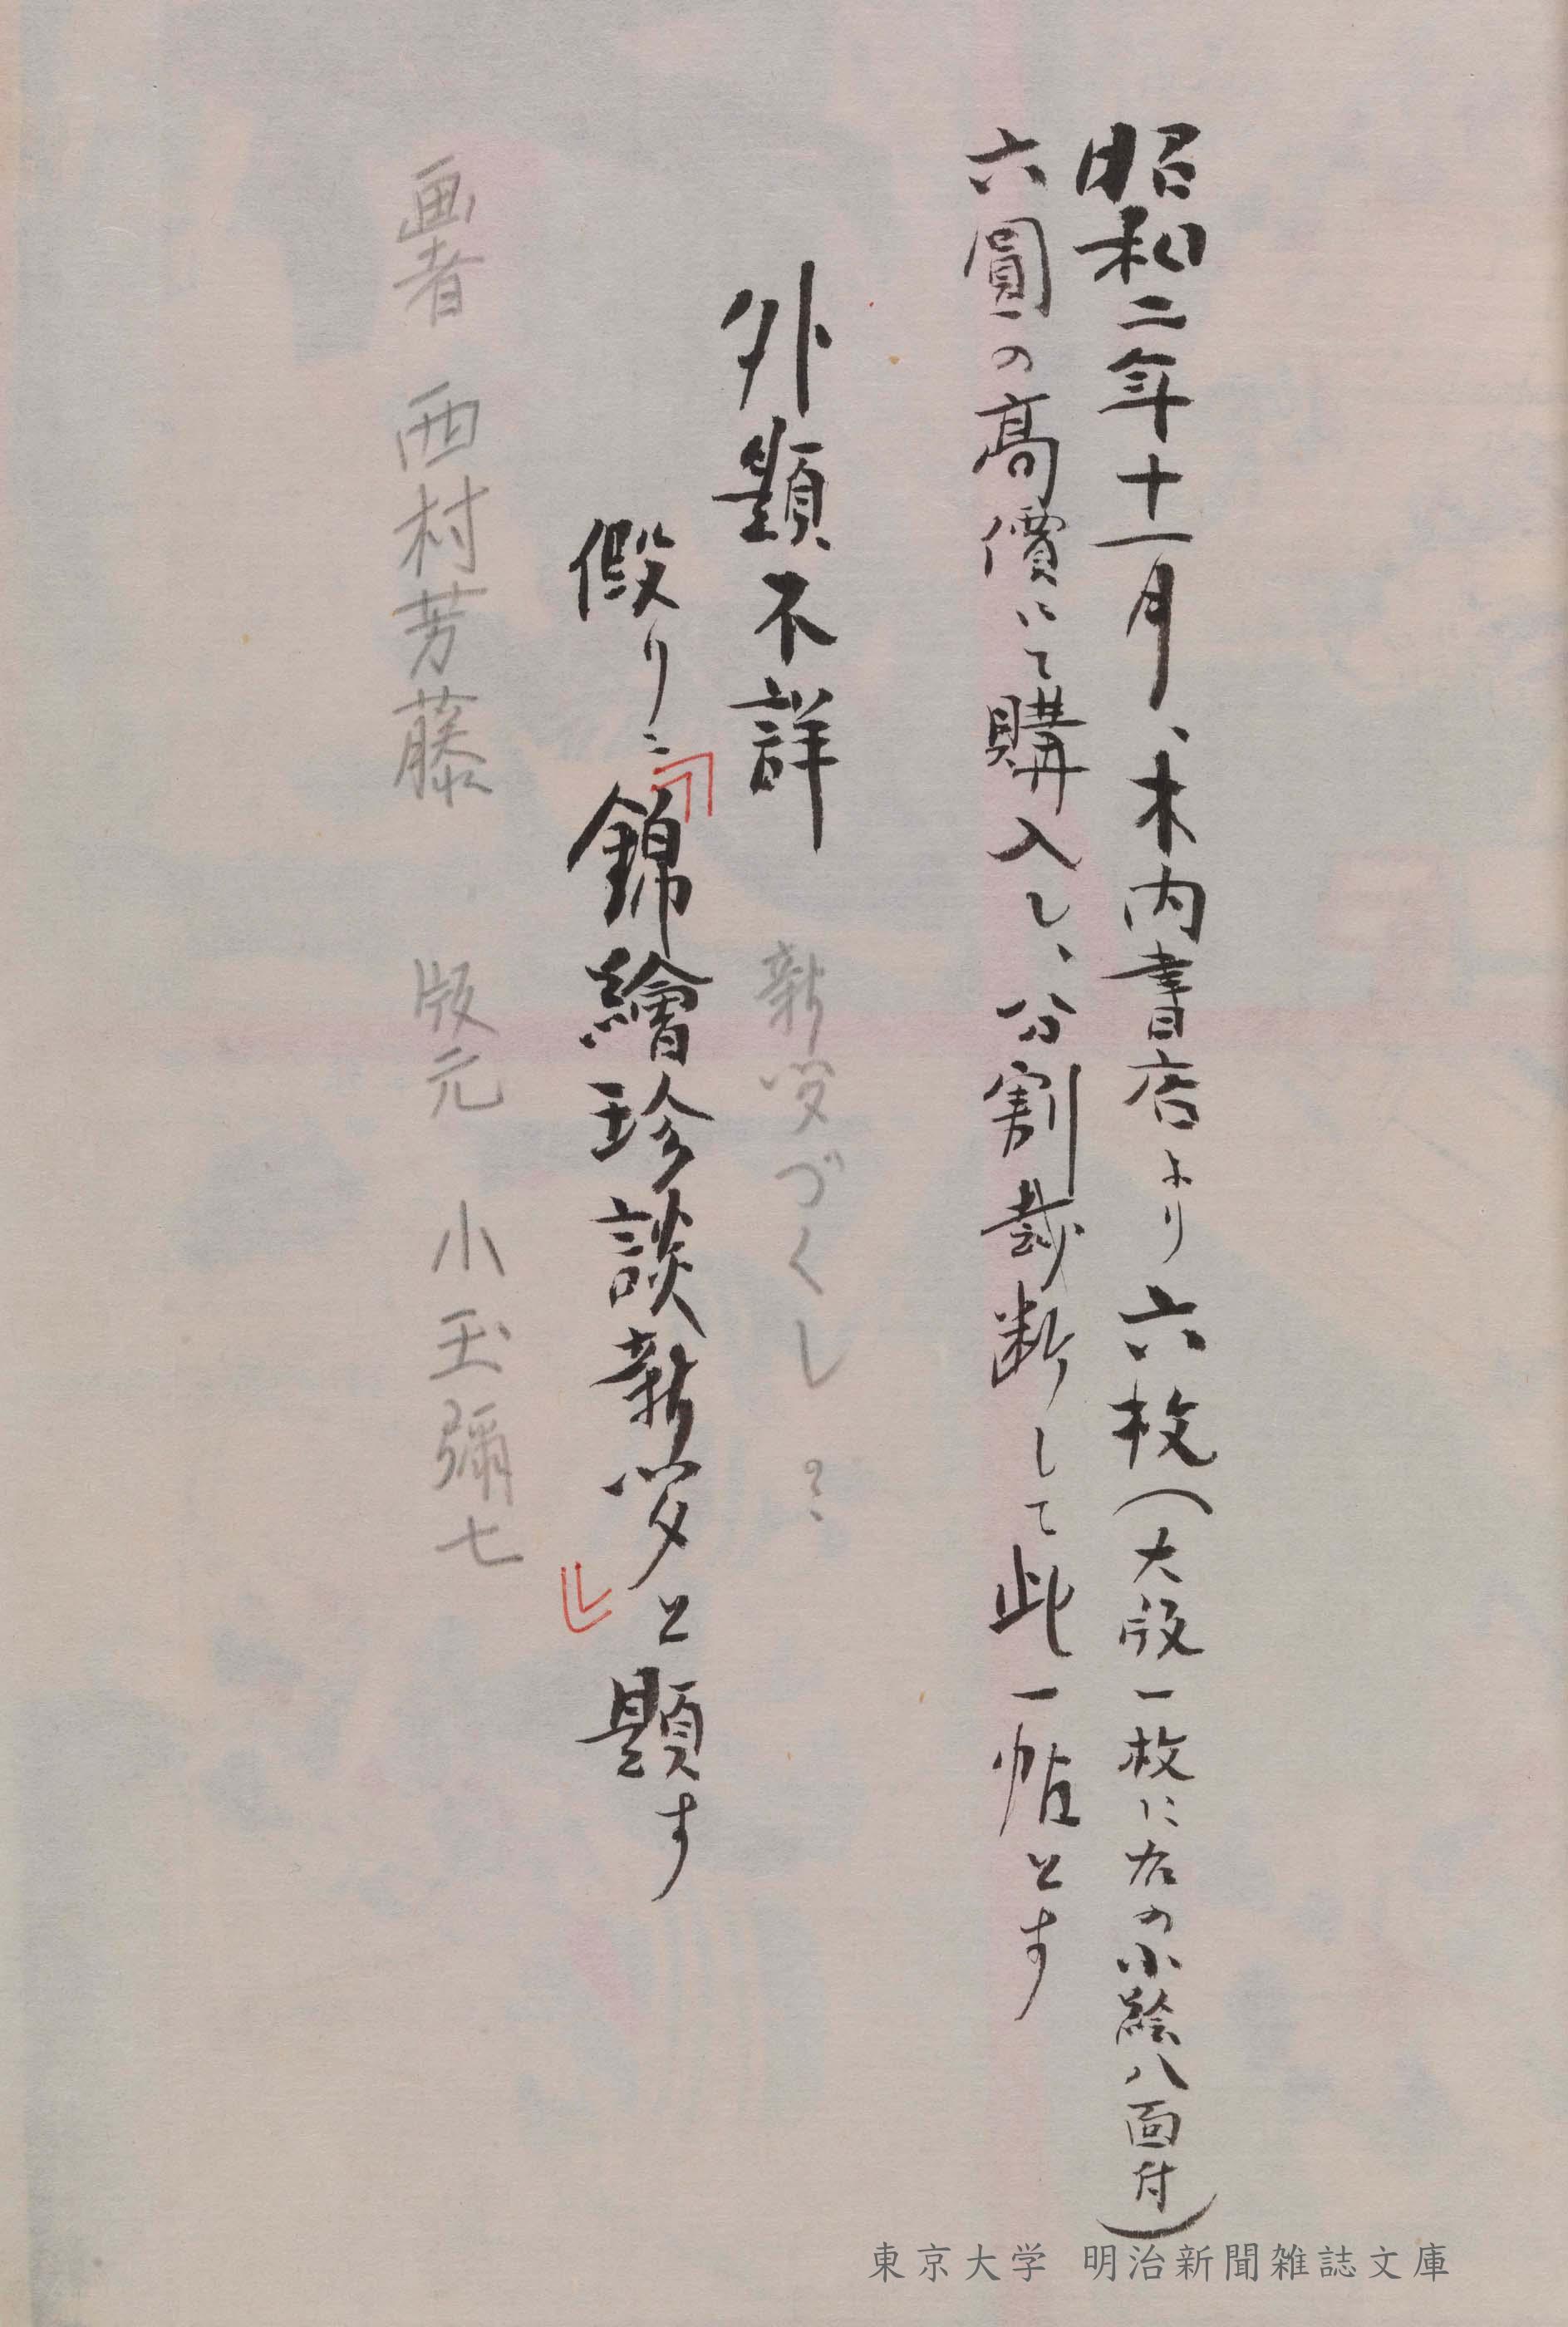 昭和二年十一月、木内書店より六枚(大版一枚に右の小絵八面付)
六圓の高價にて購入し、分割裁断して此一帖とす
外題不詳
新聞づくし
假りニ『錦繪珍談新聞』と題す
画者 西村芳藤 版元 小玉彌七
東京大学 明治新聞雑誌文庫